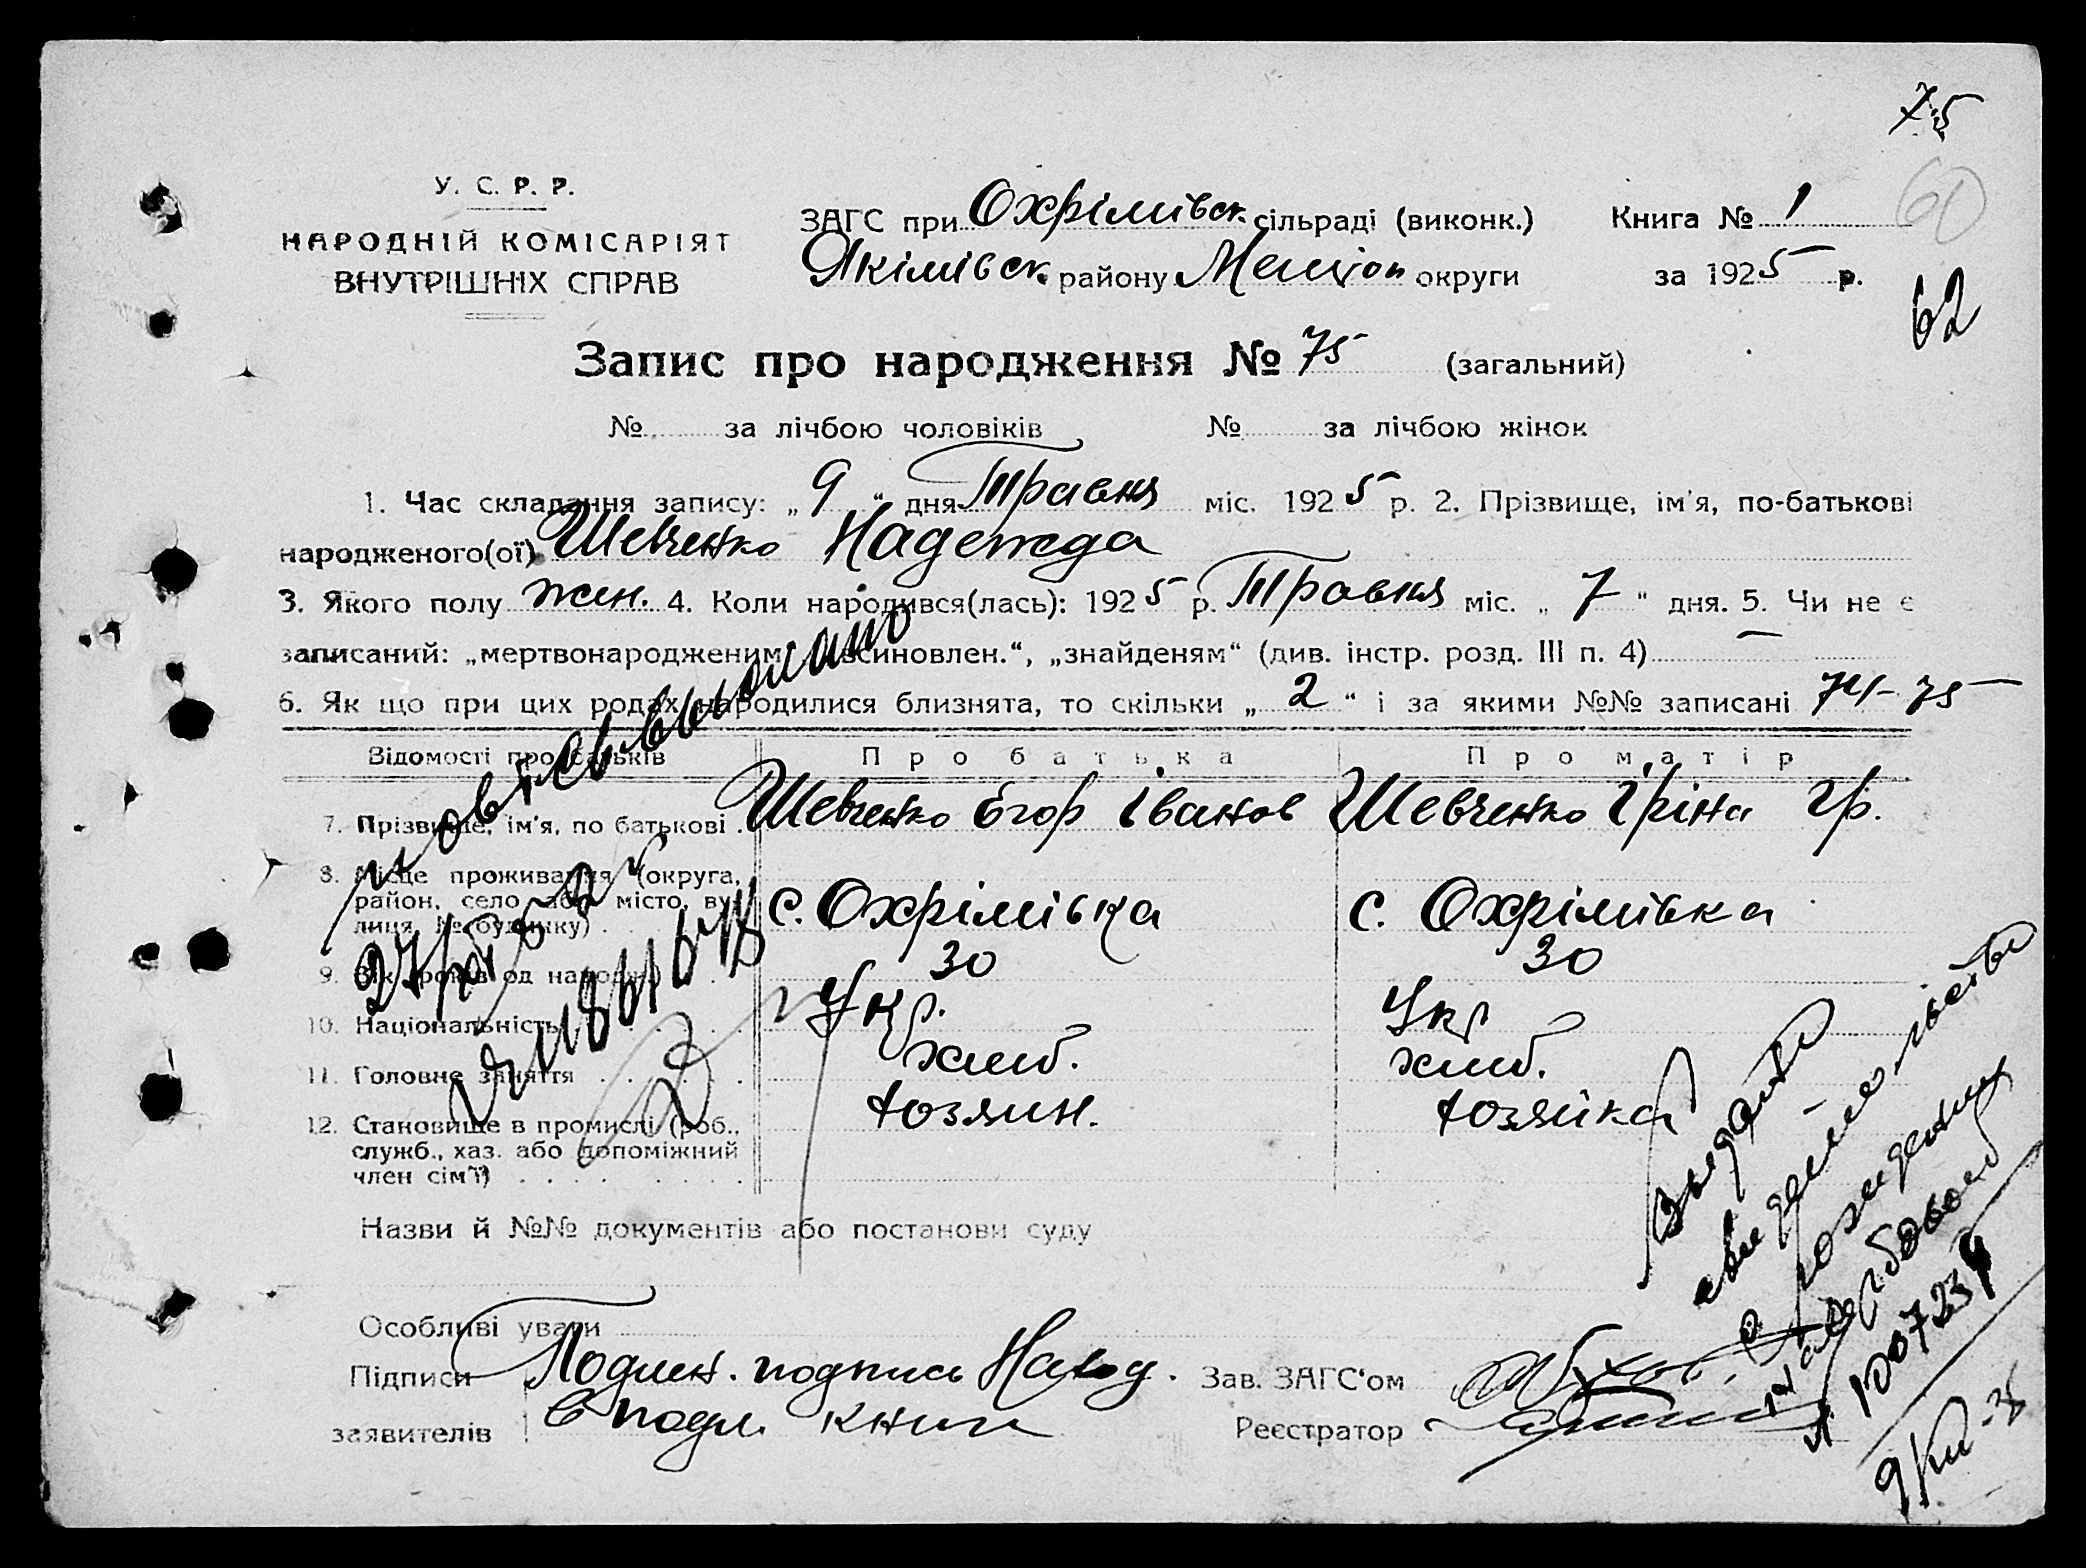 75
У. С. Р. Р.
НАРОДНІЙ КОМІСАРІЯТ
ВНУТРІШНІХ СПРАВ
ЗАГС при Охрімівск. сільраді (виконк.) Книга № 1 60
Якімівск. району Меліоп округи за 1925 р.
62
Запис про народження № 75 (загальний)
№ за лічбою чоловіків № за лічбою жінок
1. Час складання запису: „ 9 “ дня Травня міс. 1925 р. 2. Прізвище, ім'я, по-батькові
народженого(ої) Шевченко Надежда
3. Якого полу жен. 4. Коли народився(лась): 1925 р. Травня міс. „ 7 “ дня. 5. Чи не є
записаний: „мертвонародженим, всиновлен.“, „знайденям“ (див. інстр. розд. III п. 4) —
6. Як що при цих родах народилися близнята, то скільки „ 2 “ і за якими №№ записані 74-75
Відомості про батьків Про батька Про матір
7. Прізвище, ім'я, по батькові . Шевченко Єгор Іванов Шевченко Іріна Гр.
8. Місце проживання (округа,
район, село або місто, ву-
лиця, № будинку) . с. Охрімівка с. Охрімівка
9. Вік (років од народж.) 30 30
10. Національність Укр. Укр
11. Головне заняття хліб. хліб.
12. Становище в промислі (роб.,
служб., хаз. або допоміжний
член сім'ї) хозяин. хозяйка
Назви й №№ документів або постанови суду
Особливі уваги
Підписи Подлен. подпись Наход. Зав. ЗАГС'ом
заявителів в подл. книги Реєстратор
повторно выписано
Выдано
свидетельство
о рождении